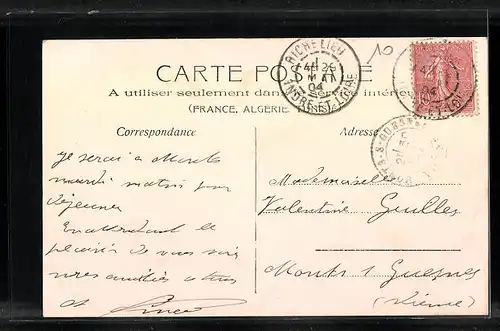 10
RICHELIEU
MAI
04
INDRE-ET-LOIRE
CARTE POSTALE
A utiliser seulement dans le service intérieur
(FRANCE, ALGERIE, TUNISIE)
Correspondance
Adresse
Je serai à Monts
mardi matin pour
déjeuner
En attendant le
plaisir de vous voir
mes amitiés à tous
Mademoiselle
Valentine Guilles
Monts s Guesnes
(Vienne)